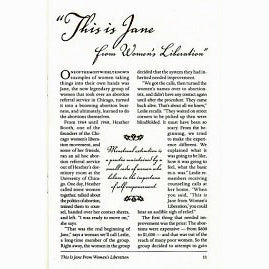 "This is Jane
from Women's Liberation"
ONE OF THE MOST WELL-KNOWN
examples of women taking
things into their own hands was
Jane, the now legendary group of
women that took over an abortion
referral service in Chicago, turned
it into a booming abortion busi-
ness, and ultimately, learned to do
the abortions themselves.
From 1968 until 1968, Heather
Booth, one of the
founders of the Chi-
cago women's libera-
tion movement, and
some of her friends,
ran an ad hoc abor-
tion referral service
out of Heather's dor-
mitory room at the
University of Chica-
go. One day, Heather
called some women
together, talked about
the politics of abortion,
trained them to coun-
sel, handed over her contact sheets,
and left. "I was ready to move on,"
she says.
"That was the real beginning of
Jane," says a woman we'll call Leslie,
a long-time member of the group.
Right away, the women in the group
Menstrual extraction is
a practice maintained by a
small cadre of women who
believe in the importance
of self-empowerment.
decided that the system they had in-
herited needed improvement.
"We got the calls, then turned the
women's names over to abortion-
ists, and didn't have any contact again
until after the procedure. They came
back alive. That's about all we knew,"
Leslie recalls. "They stood on street
corners to be picked up then were
blindfolded. It must have been so
scary. From the be-
ginning, we tried
to make the exper-
ience different. We
explained what it
was going to be like,
how it was going to
feel, what the hour-
s was." Leslie re-
members receiving
counseling calls at
her home. "When
you said, 'This is
Jane from Women's
Liberation,' you could
hear an audible sigh of relief."
The next thing that needed im-
provement was the price. The abor-
tions were expensive — from $600
to $1,000 — and that was out of the
reach of many poor women. So the
group decided to attempt to gain
This is Jane From Women's Liberation
11